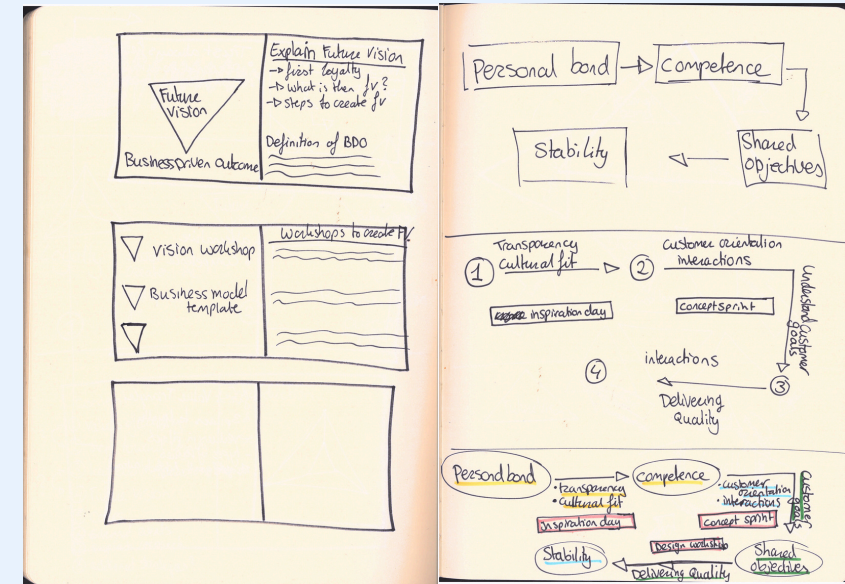 Future
Vision
Business Driven outcome
Explain Future Vision
first loyalty
What is then fv?
steps to create fv
Definition of BDO
Vision workshop
Business model
template
Workshops to create FV.
Personal bond
Competence
Shared
objectives
Stability
1
Transparency
Cultural fit
2
Customer orientation
interactions
inspiration day
concept sprint
Understand customer
goals
3
4
interactions
Delivering
Quality
Personal bond
• transparency
• cultural fit
inspiration day
competence
• customer
orientation
• interactions
concept sprint
customer
goals
Design workshop
Stability
Delivering Quality
Shared
objectives